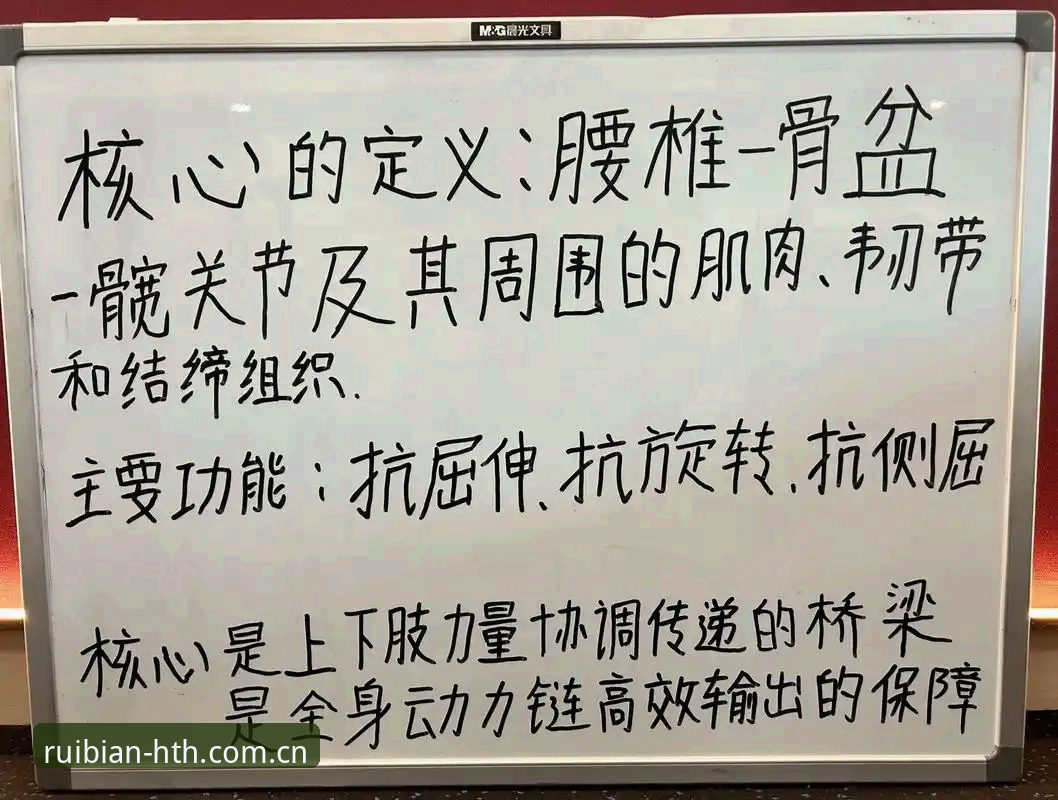 M&G晨光文具
核心的定义:腰椎-骨盆
-髋关节及其周围的肌肉、韧带
和结缔组织.
主要功能:抗屈伸、抗旋转、抗侧屈
核心是上下肢力量协调传递的桥梁
是全身动力链高效输出的保障
ruibian-hth.com.cn